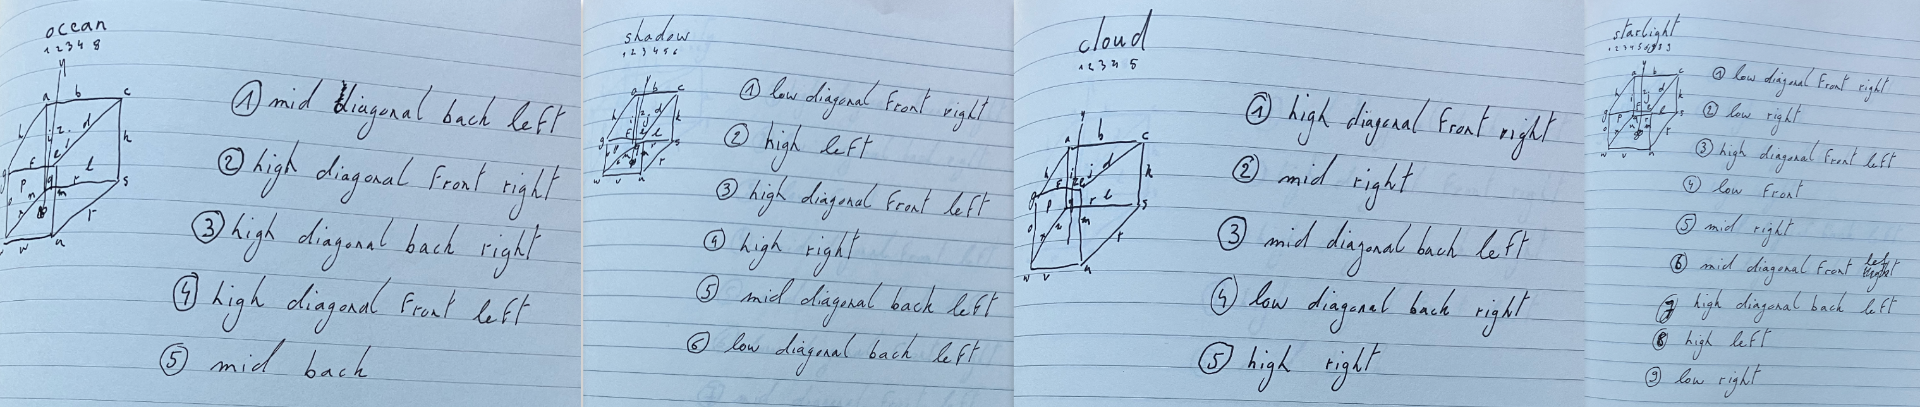 ocean
1 2 3 4 5
① mid diagonal back left
② high diagonal front right
③ high diagonal back right
④ high diagonal front left
⑤ mid back
shadow
1 2 3 4 5 6
① low diagonal front right
② high left
③ high diagonal front left
④ high right
⑤ mid diagonal back left
⑥ low diagonal back left
cloud
1 2 3 4 5
① high diagonal front right
② mid right
③ mid diagonal back left
④ low diagonal back right
⑤ high right
starlight
1 2 3 4 5 6 7 8 9
① low diagonal front right
② low right
③ high diagonal front left
④ low front
⑤ mid right
⑥ mid diagonal front left
⑦ high diagonal back left
⑧ high left
⑨ low right